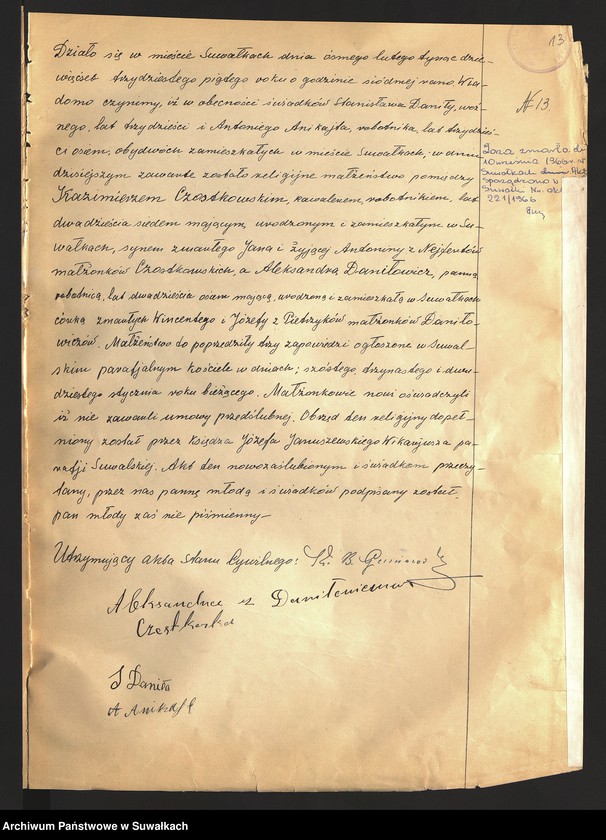 13
Działo się w mieście Suwałkach dnia ósmego lutego tysiąc dzie-
więćset trzydziestego piątego roku o godzinie siódmej rano Wia-
domo czynimy, iż w obecności świadków Stanisława Daniły, woź-
nego, lat trzydzieści i Antoniego Anikajta, robotnika, lat trzydzieś-
ci osiem, obydwóch zamieszkałych w mieście Suwałkach; w dniu
dzisiejszym zawarte zostało religijne małżeństwo pomiędzy
Kazimierzem Czostkowskim, kawalerem, robotnikiem, lat
dwadzieścia siedem mającym, urodzonym i zamieszkałym w Su-
wałkach, synem zmarłego Jana i żyjącej Antoniny z Nejfertów
małżonków Czostkowskich, a Aleksandrą Daniłowicz, panną
robotnicą, lat dwadzieścia osiem mającą, urodzoną i zamieszkałą w Suwałkach
córką zmarłych Wincentego i Józefy z Pietrzyków małżonków Daniło-
wiczów. Małżeństwo to poprzedziły trzy zapowiedzi ogłoszone w Suwal-
skim parafjalnym kościele w dniach; szóstego, trzynastego i dwu-
dziestego stycznia roku bieżącego. Małżonkowie nowi oświadczyli
iż nie zawarli umowy przedślubnej. Obrzęd ten religijny dopeł-
niony został przez Księdza Józefa Januszewskiego Wikarjusza pa-
rafji Suwalskiej. Akt ten nowozaślubionym i świadkom przeczy-
tany, przez nas pannę młodą i świadków podpisany został.
pan młody zaś nie piśmienny
№ 13
zmarła dn
10 września 1966 r. w
Suwałkach
sporządzono w
Suwałk. Nr.
221/1966
Utrzymujący akta stanu Cywilnego: Ks. B.
Aleksandra z
S Daniła
A Anikajt
Archiwum Państwowe w Suwałkach